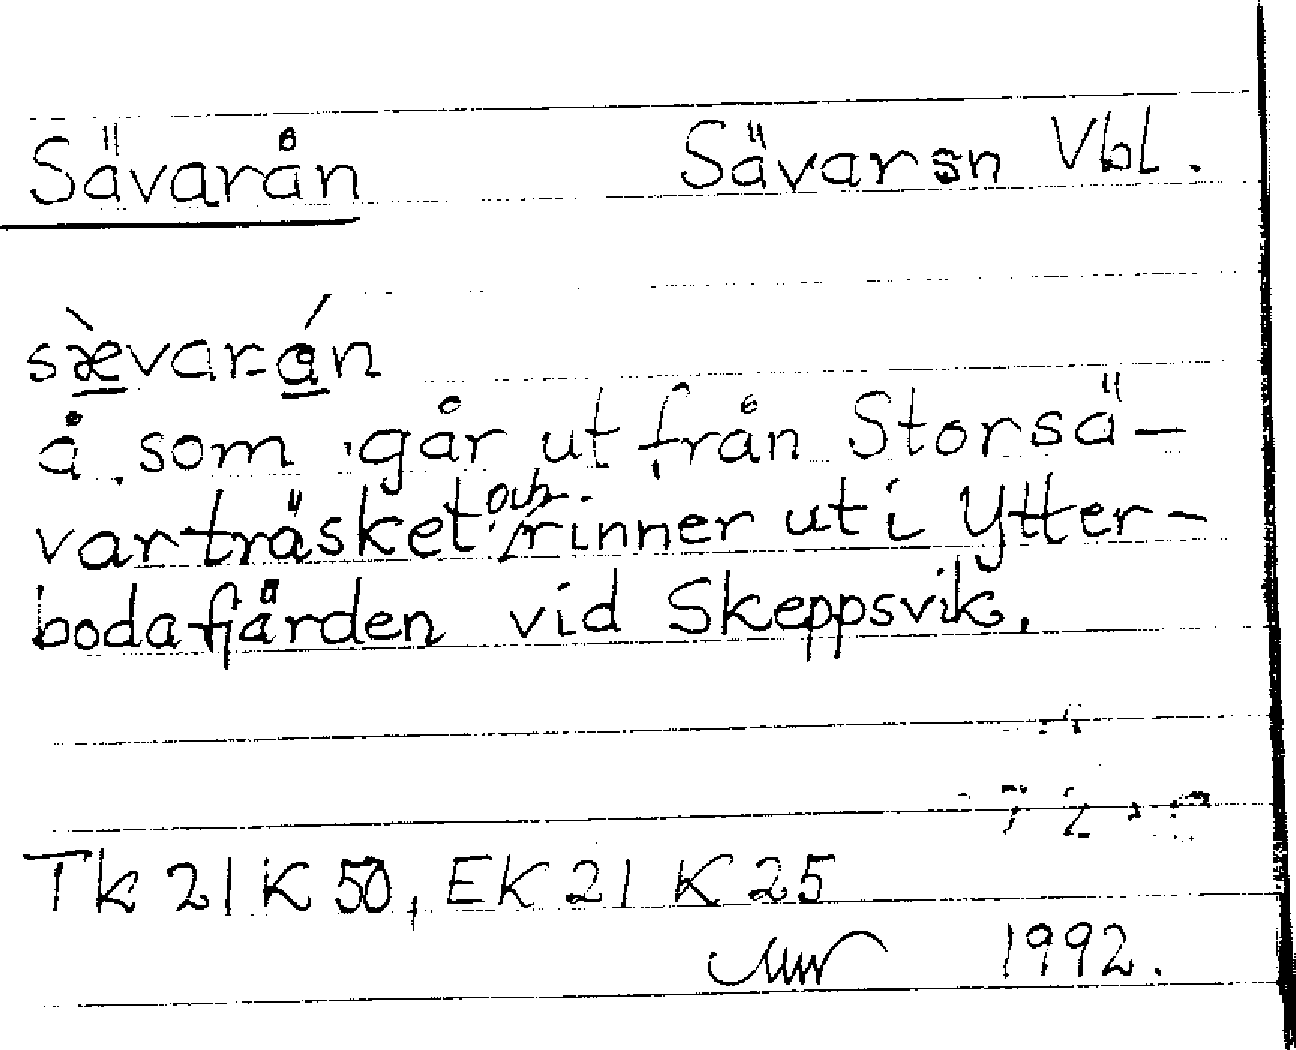 Sävarån Sävar sn Vbl.
sæ̀var-án
å som går ut från Storsä-
varträsket och rinner ut i Ytter-
bodafjärden vid Skeppsvik.
Tk 21 K 50, EK 21 K 25
1992.